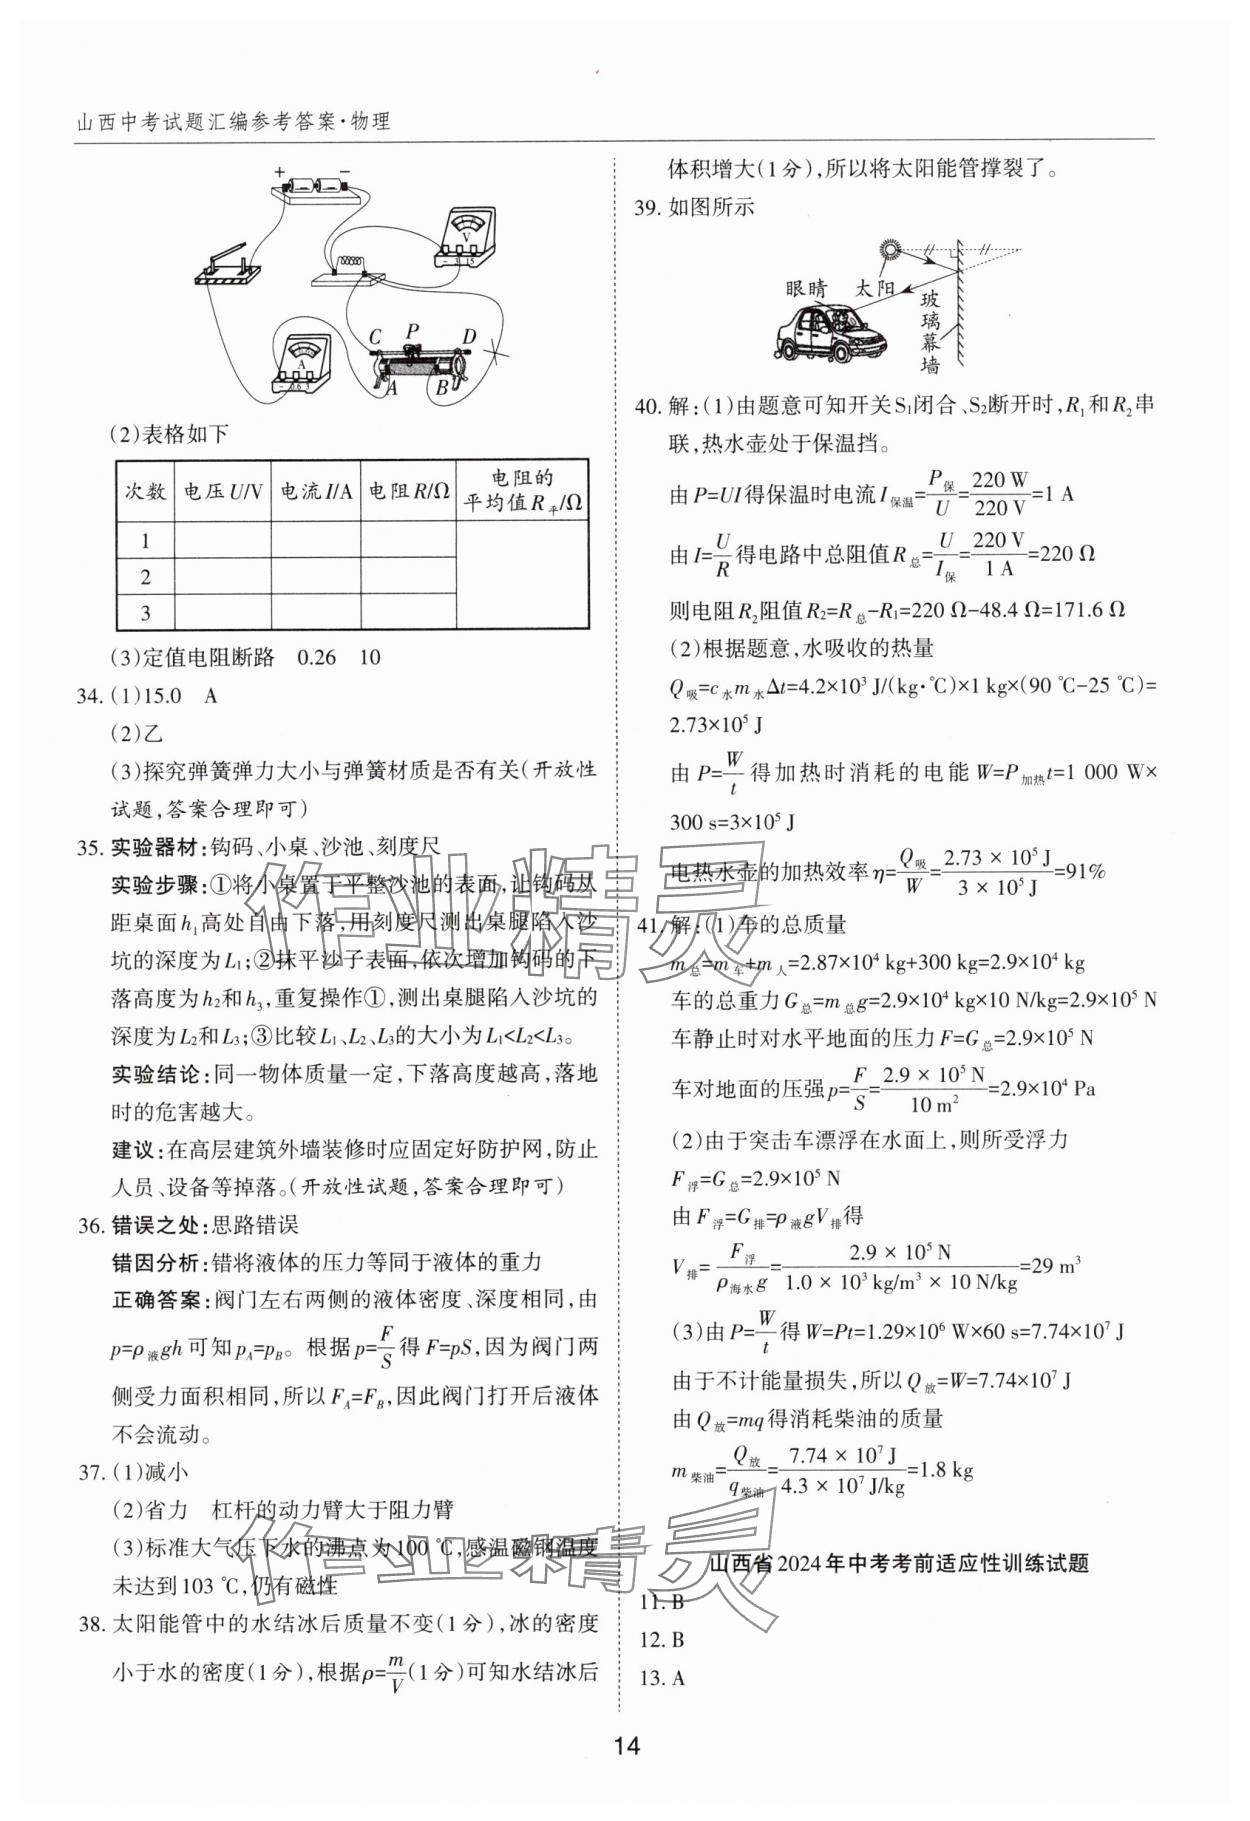 山西中考试题汇编参考答案·物理
+ −
V
− 3 15
A
− 0.6 3
C P D
A B
(2)表格如下
次数 电压U/V 电流I/A 电阻R/Ω 电阻的平均值R平/Ω
1
2
3
(3)定值电阻断路 0.26 10
34. (1)15.0 A
(2)乙
(3)探究弹簧弹力大小与弹簧材质是否有关(开放性
试题,答案合理即可)
35. 实验器材:钩码、小桌、沙池、刻度尺
实验步骤:①将小桌置于平整沙池的表面,让钩码从
距桌面h₁高处自由下落,用刻度尺测出桌腿陷入沙
坑的深度为L₁;②抹平沙子表面,依次增加钩码的下
落高度为h₂和h₃,重复操作①,测出桌腿陷入沙坑的
深度为L₂和L₃;③比较L₁、L₂、L₃的大小为L₁<L₂<L₃。
实验结论:同一物体质量一定,下落高度越高,落地
时的危害越大。
建议:在高层建筑外墙装修时应固定好防护网,防止
人员、设备等掉落。(开放性试题,答案合理即可)
36. 错误之处:思路错误
错因分析:错将液体的压力等同于液体的重力
正确答案:阀门左右两侧的液体密度、深度相同,由
p=ρ液gh可知pA=pB。根据p=F/S得F=pS,因为阀门两
侧受力面积相同,所以FA=FB,因此阀门打开后液体
不会流动。
37. (1)减小
(2)省力 杠杆的动力臂大于阻力臂
(3)标准大气压下水的沸点为100 ℃,感温磁钢温度
未达到103 ℃,仍有磁性
38. 太阳能管中的水结冰后质量不变(1分),冰的密度
小于水的密度(1分),根据ρ=m/V(1分)可知水结冰后
体积增大(1分),所以将太阳能管撑裂了。
39. 如图所示
眼睛 太阳 玻璃幕墙
40. 解:(1)由题意可知开关S₁闭合、S₂断开时,R₁和R₂串
联,热水壶处于保温挡。
由P=UI得保温时电流I保温=P保/U=220 W/220 V=1 A
由I=U/R得电路中总阻值R总=U/I保=220 V/1 A=220 Ω
则电阻R₂阻值R₂=R总-R₁=220 Ω-48.4 Ω=171.6 Ω
(2)根据题意,水吸收的热量
Q吸=c水m水Δt=4.2×10³ J/(kg·℃)×1 kg×(90 ℃-25 ℃)=
2.73×10⁵ J
由P=W/t得加热时消耗的电能W=P加热t=1 000 W×
300 s=3×10⁵ J
电热水壶的加热效率η=Q吸/W=2.73 × 10⁵ J/3 × 10⁵ J=91%
41. 解:(1)车的总质量
m总=m车+m人=2.87×10⁴ kg+300 kg=2.9×10⁴ kg
车的总重力G总=m总g=2.9×10⁴ kg×10 N/kg=2.9×10⁵ N
车静止时对水平地面的压力F=G总=2.9×10⁵ N
车对地面的压强p=F/S=2.9 × 10⁵ N/10 m²=2.9×10⁴ Pa
(2)由于突击车漂浮在水面上,则所受浮力
F浮=G总=2.9×10⁵ N
由F浮=G排=ρ液gV排得
V排=F浮/ρ海水g=2.9 × 10⁵ N/1.0 × 10³ kg/m³ × 10 N/kg=29 m³
(3)由P=W/t得W=Pt=1.29×10⁶ W×60 s=7.74×10⁷ J
由于不计能量损失,所以Q放=W=7.74×10⁷ J
由Q放=mq得消耗柴油的质量
m柴油=Q放/q柴油=7.74 × 10⁷ J/4.3 × 10⁷ J/kg=1.8 kg
山西省2024年中考考前适应性训练试题
11. B
12. B
13. A
14
作业精灵
作业精灵